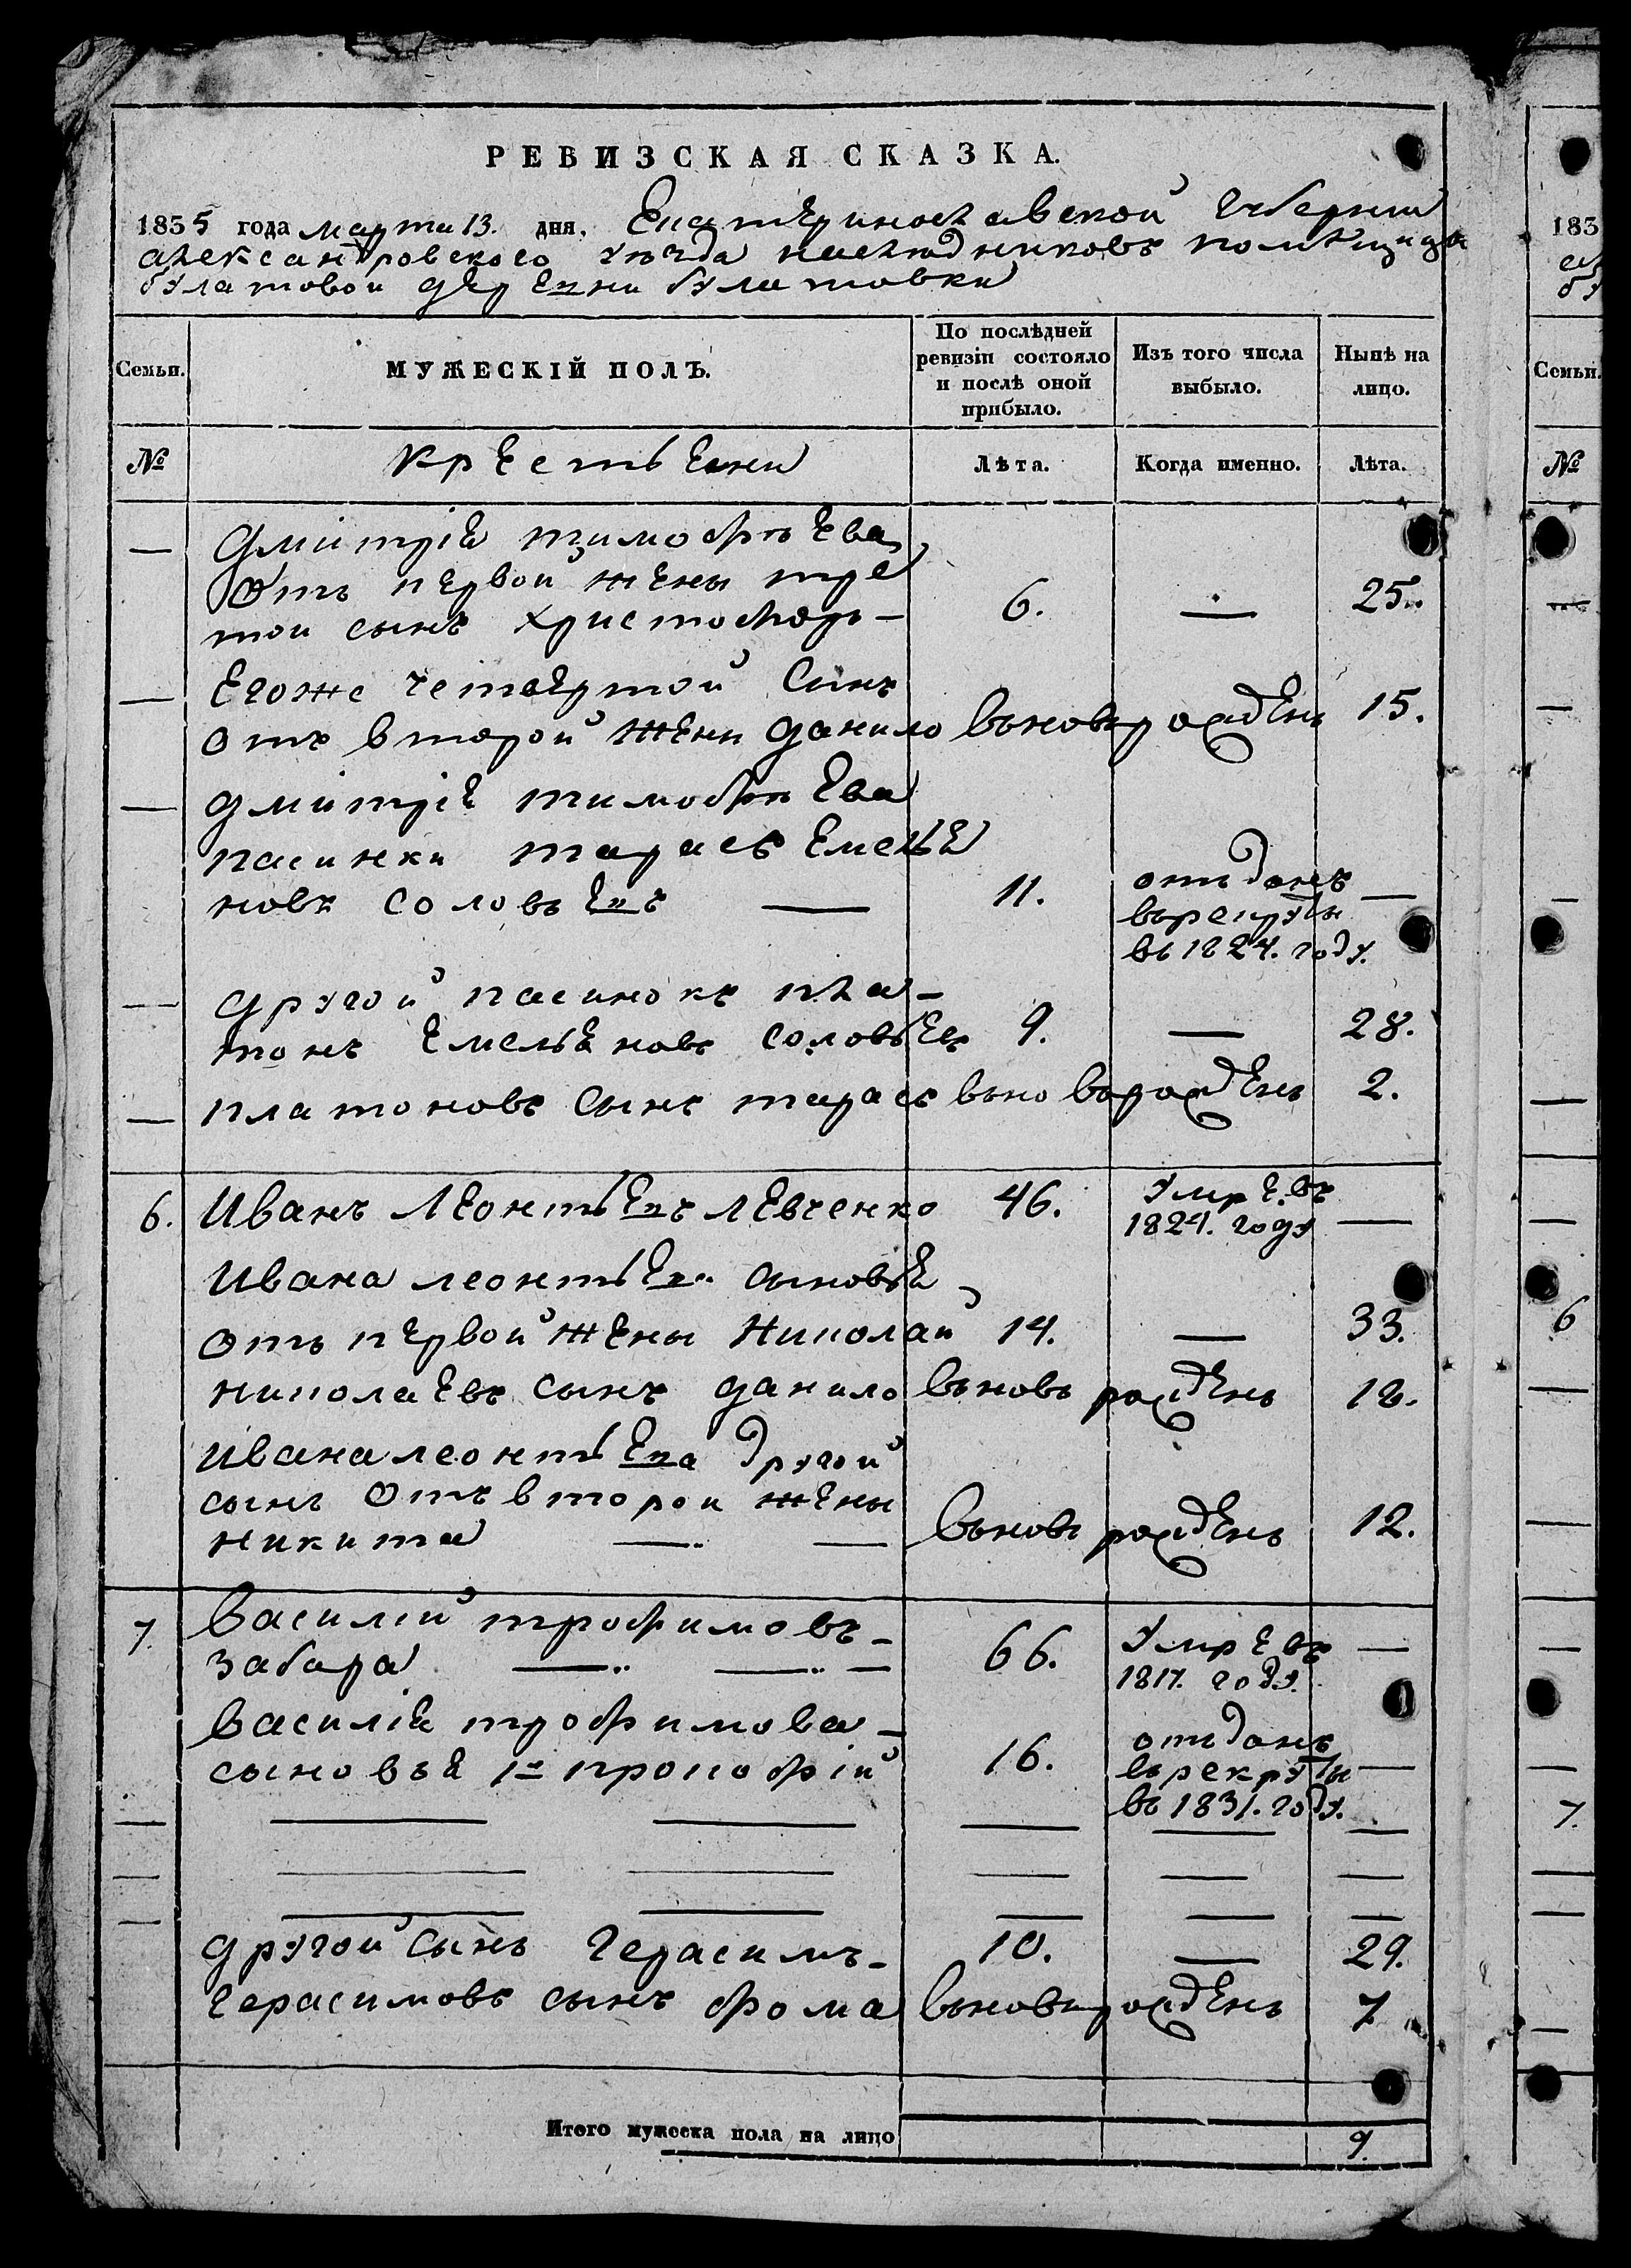 РЕВИЗСКАЯ СКАЗКА.
1835 года марта 13. дня, Екатеринославской Губернии
александровского уезда наследниковъ помѣщика
булатовои деревни булатовки
Семьи.
МУЖЕСКІЙ ПОЛЪ.
По послѣдней ревизіи состояло и послѣ оной прибыло.
Изъ того числа выбыло.
Нынѣ на лицо.
№
крестьяни
Лѣта.
Когда именно.
Лѣта.
— Дмитрія тимофѣева
отъ первой жены тре
тои сынъ христофоръ — 6. — 25.
— Егоже четвертой сынъ
отъ второй жени данило вьновьрожденъ 15.
— дмитрія тимофѣева
пасинки тарасъ Емелья
новъ соловьевъ — 11. отъданъ —
върекруты
въ 1824. году.
— другой пасинокъ пла-
тонъ Емельяновъ соловьевъ 9. — 28.
— платоновъ сынъ тарасъ вьновьрожденъ 2.
6. Иванъ Леонтьевъ левченко 46. умре въ
1824. году —
Ивана леонтьева сыновья
отъ первой жены николай 14. — 33.
николаевъ сынъ данило вьновь рожденъ 12.
Ивана леонтьева другой
сынъ отъ второи жены
никита — — вьновь рожденъ 12.
7. Василий трофимовъ-
забара — — — 66. умре въ —
1817. году.
Василія трофимова —
сыновья 1й прокофій 16. отъданъ
върекруты —
въ 1831. году.
другой сынъ герасимъ- 10. — 29.
герасимовъ сынъ фома вьновьрожденъ 7
Итого мужеска пола на лицо 9.
183
Семьи.
№
6
7.